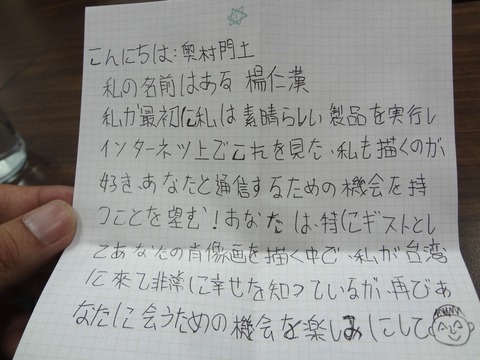 こんにちは:奥村門土
私の名前はある 楊仁漢
私が最初に私は素晴らしい製品を実行し
インターネッツ上でこれを見た、私も描くのが
好き、あなたと通信するための機会を持
つことを望む!あなたは、特にギストとし
てあなたの肖像画を描く中で、私が台湾
に来て非常に幸せを知っているが、再びあ
なたに会うための機会を楽しみにして